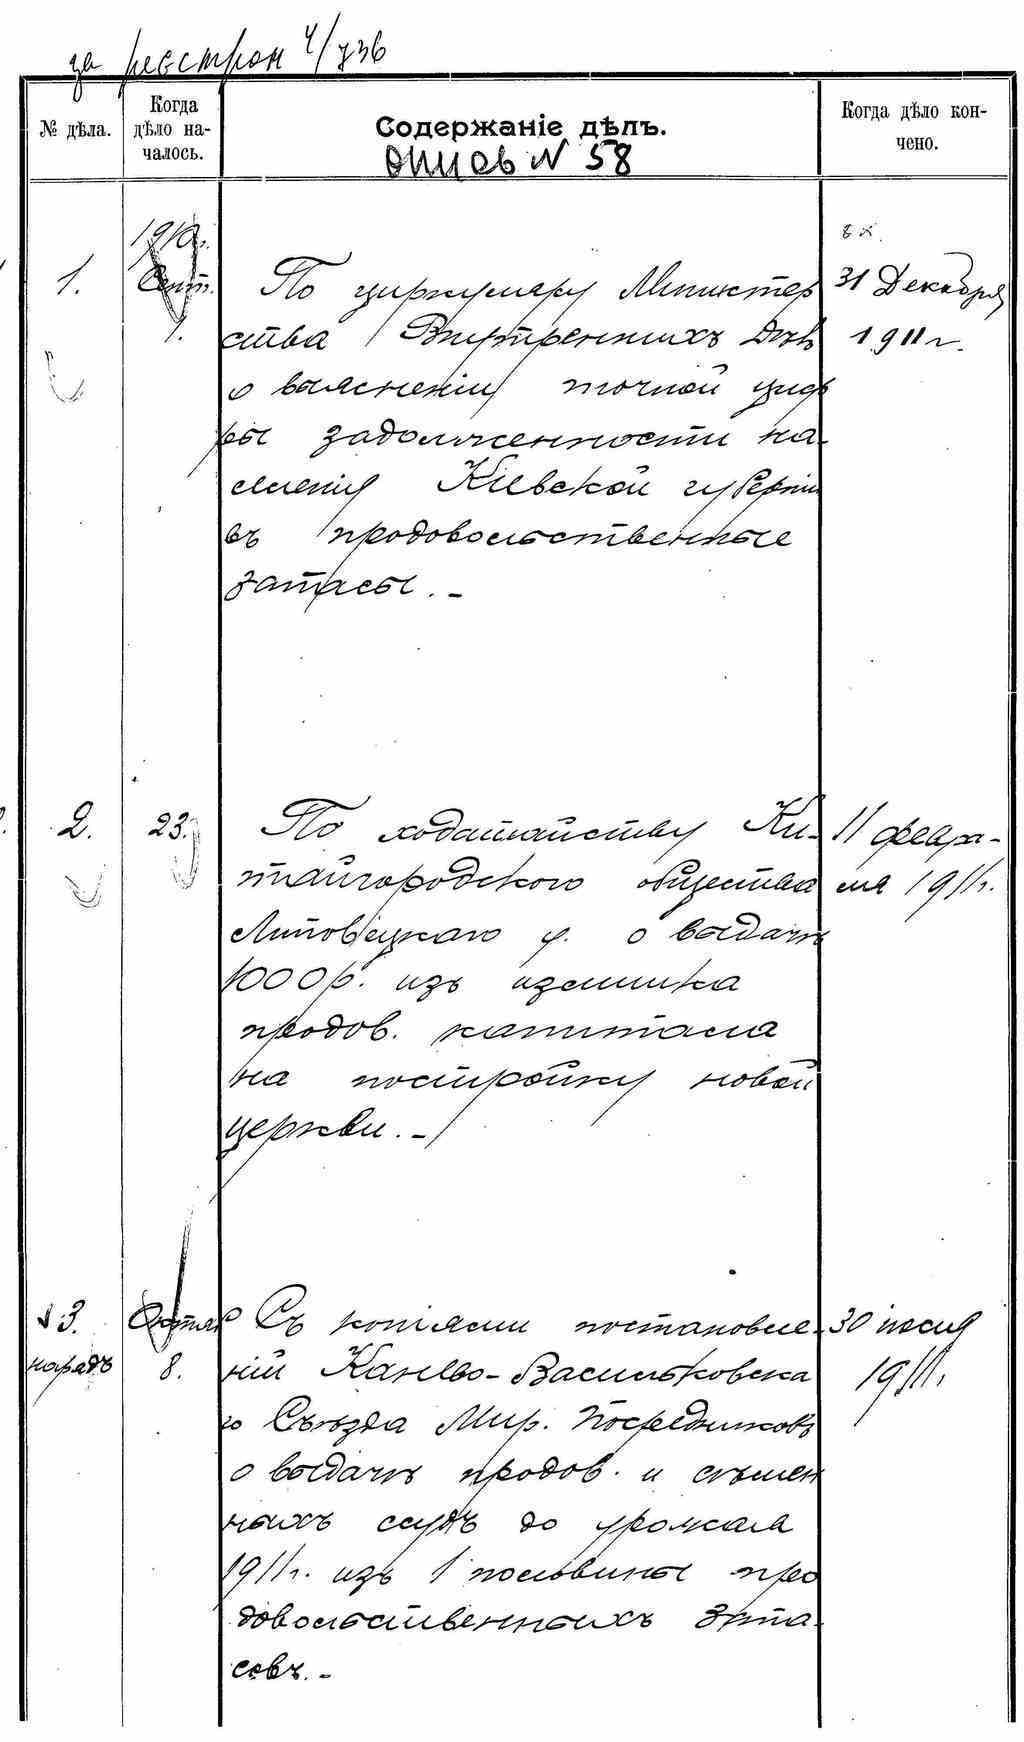 за реестром 4/736
№ дѣла.
Когда
дѣло на-
чалось.
Содержаніе дѣлъ.
опись N 58
Когда дѣло кон-
чено.
1910г.
1.
Сент.
1.
По циркуляру Министер
ства Внутреннихъ Дѣлъ
о выясненіи точной циф
ры задолженности на-
селенія Кіевской губерніи
въ продовольственные
запасы. -
31 Декабря
1911 г.
2.
23.
По ходатайству Ки-
тайгородского общества
Липовецкаго у. о выдачѣ
1000 р. изъ излишка
продов. капитала
на постройку новой
церкви. -
11 февра-
ля 1911г.
3.
нарядъ
Октяб
8.
Съ копіями постановле-
ній Канево-Васильковска
го Съѣзда Мир. Посредниковъ
о выдачѣ продов. и сѣмен
ныхъ ссудъ до урожая
1911г. изъ 1 половины про
довольственныхъ запа-
совъ. -
30 іюля
1911г.